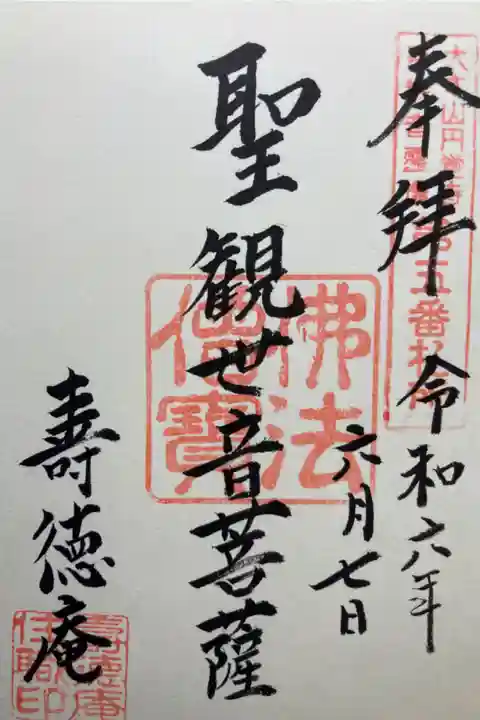 奉拝
令和六年
六月七日
聖観世音菩薩
寿徳庵
佛法
僧寶
大本山円覚寺
五番札所
寿徳庵
住職印